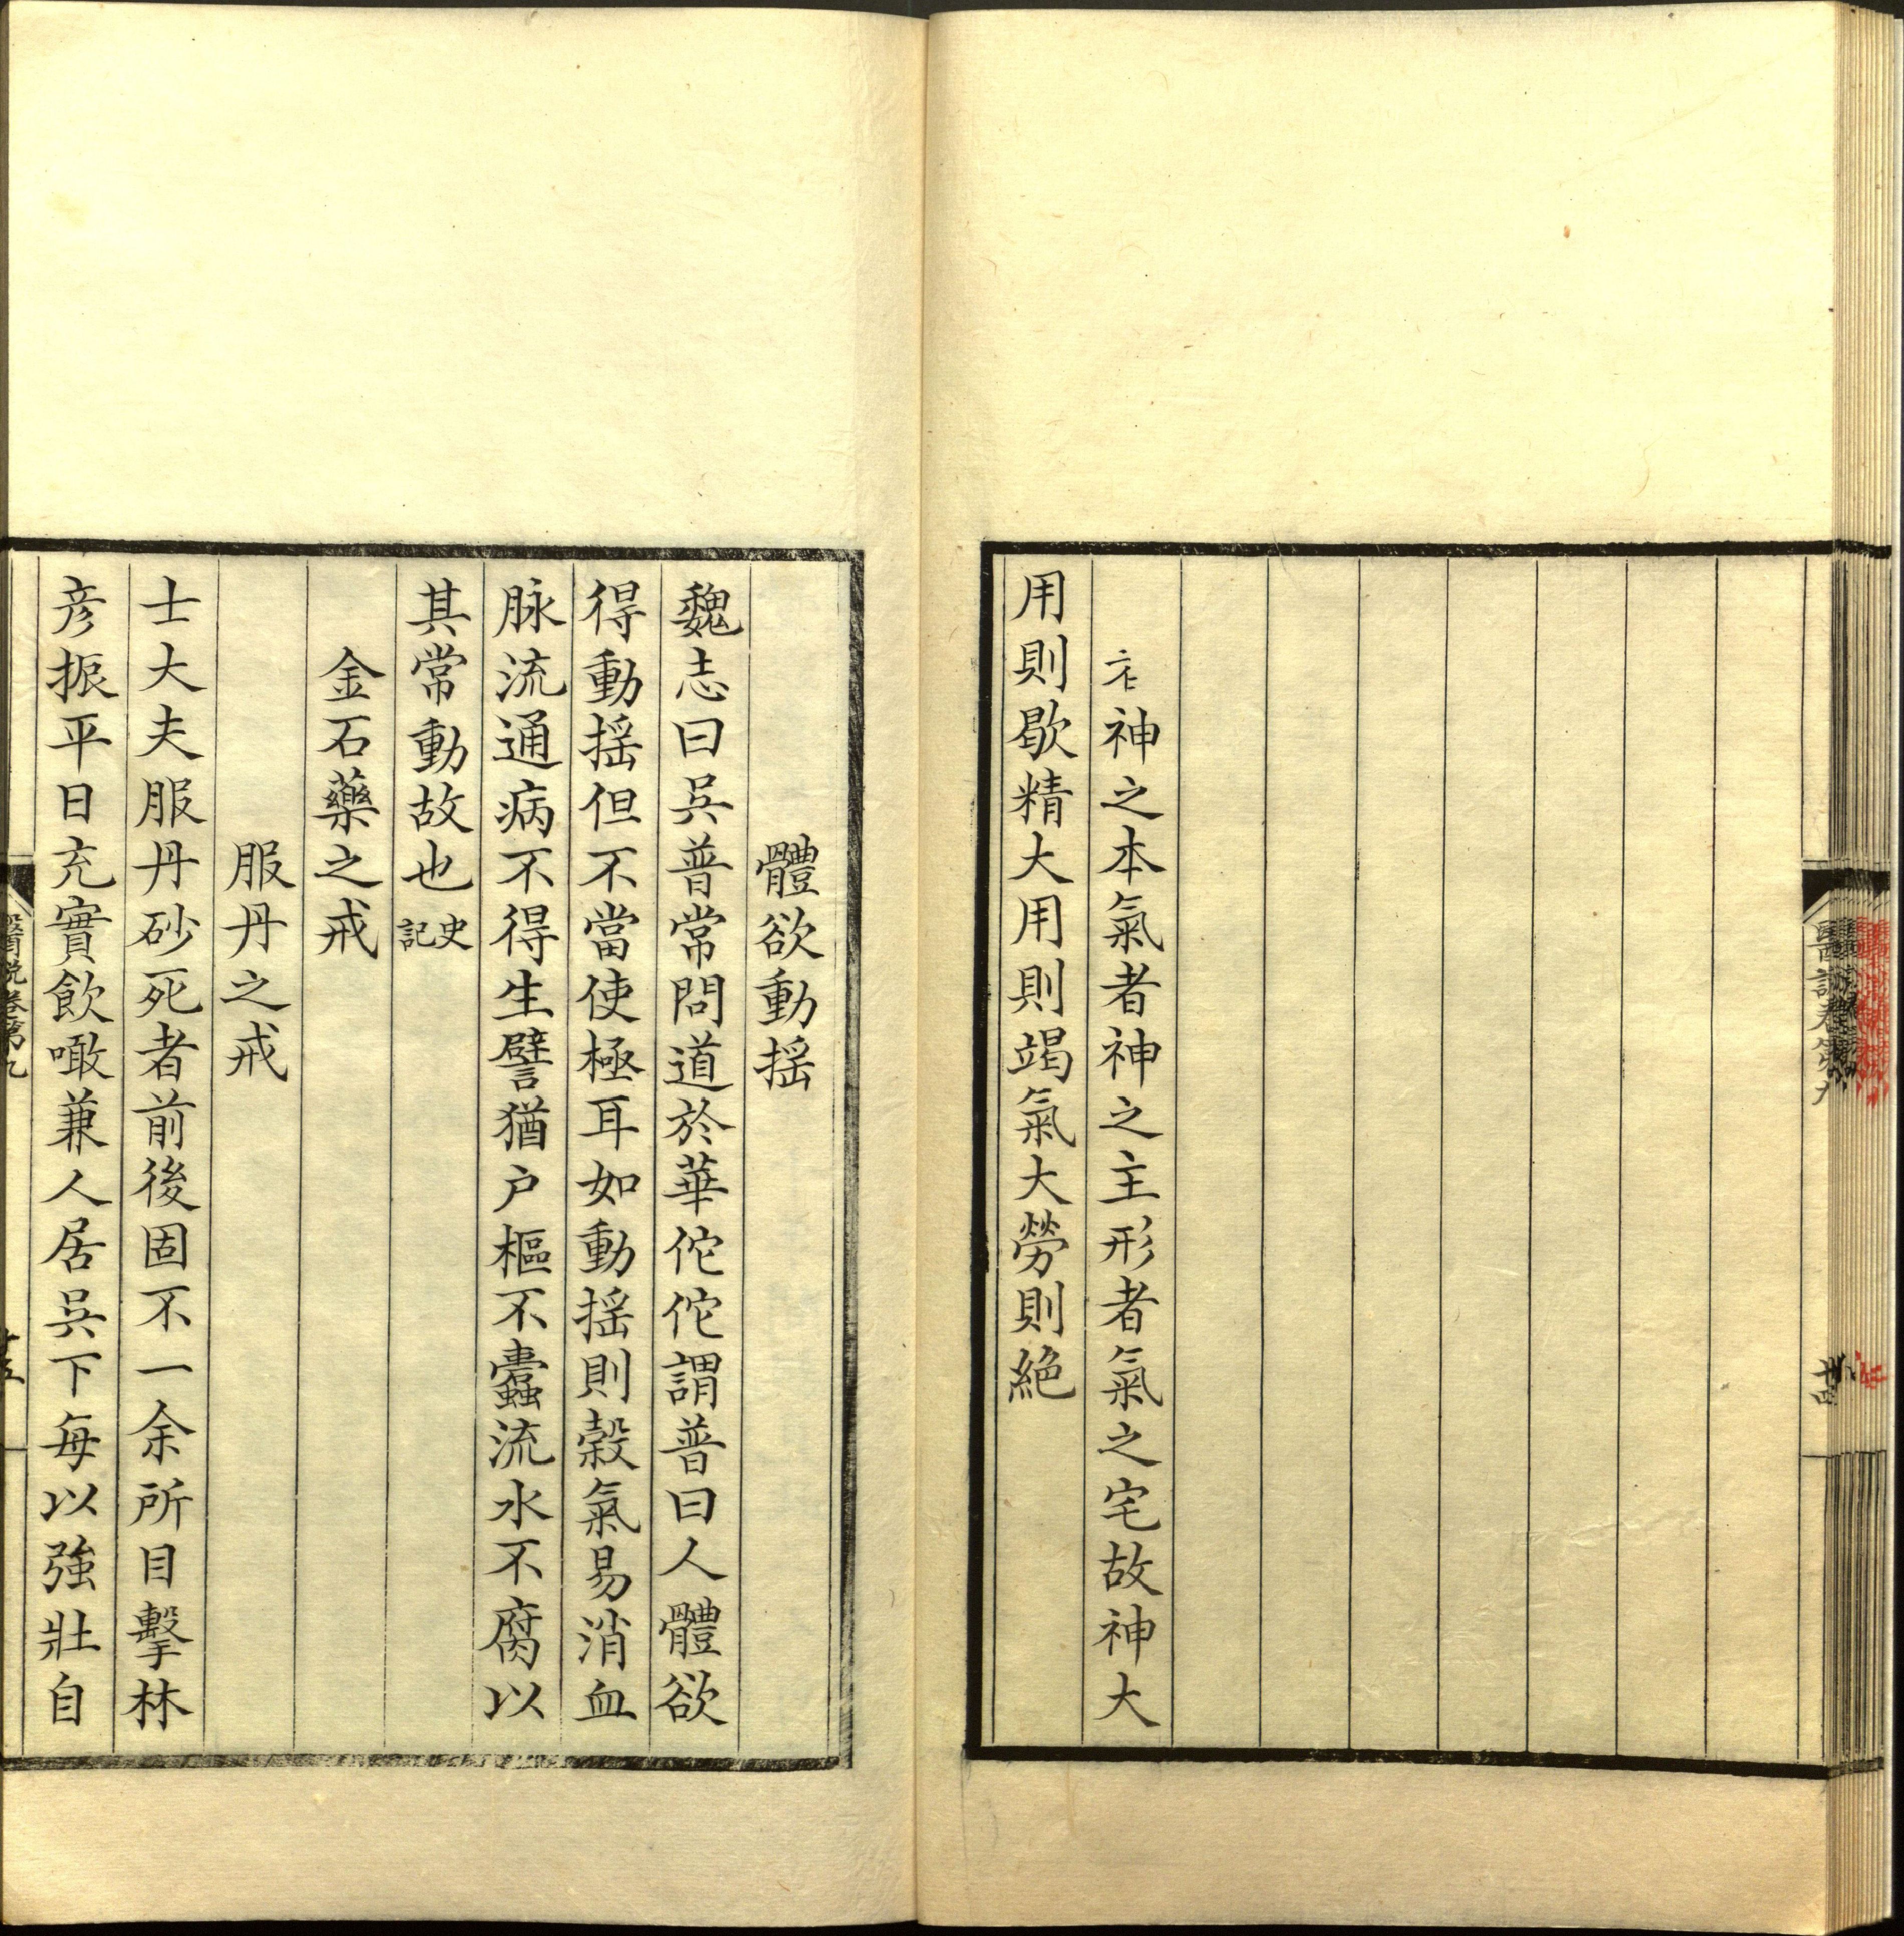 醫説卷第九
廿四
神之本氣者神之主形者氣之宅故神大
用則歇精大用則竭氣大勞則絶
體欲動揺
魏志曰吳普常問道於華佗佗謂普曰人體欲
得動揺但不當使極耳如動揺則榖氣易消血
脉流通病不得生譬猶户樞不蠹流水不腐以
其常動故也史記
金石藥之戒
服丹之戒
士大夫服丹砂死者前後固不一余所目擊林
彦振平日充實飲噉兼人居吳下每以強壯自
醫説卷第九